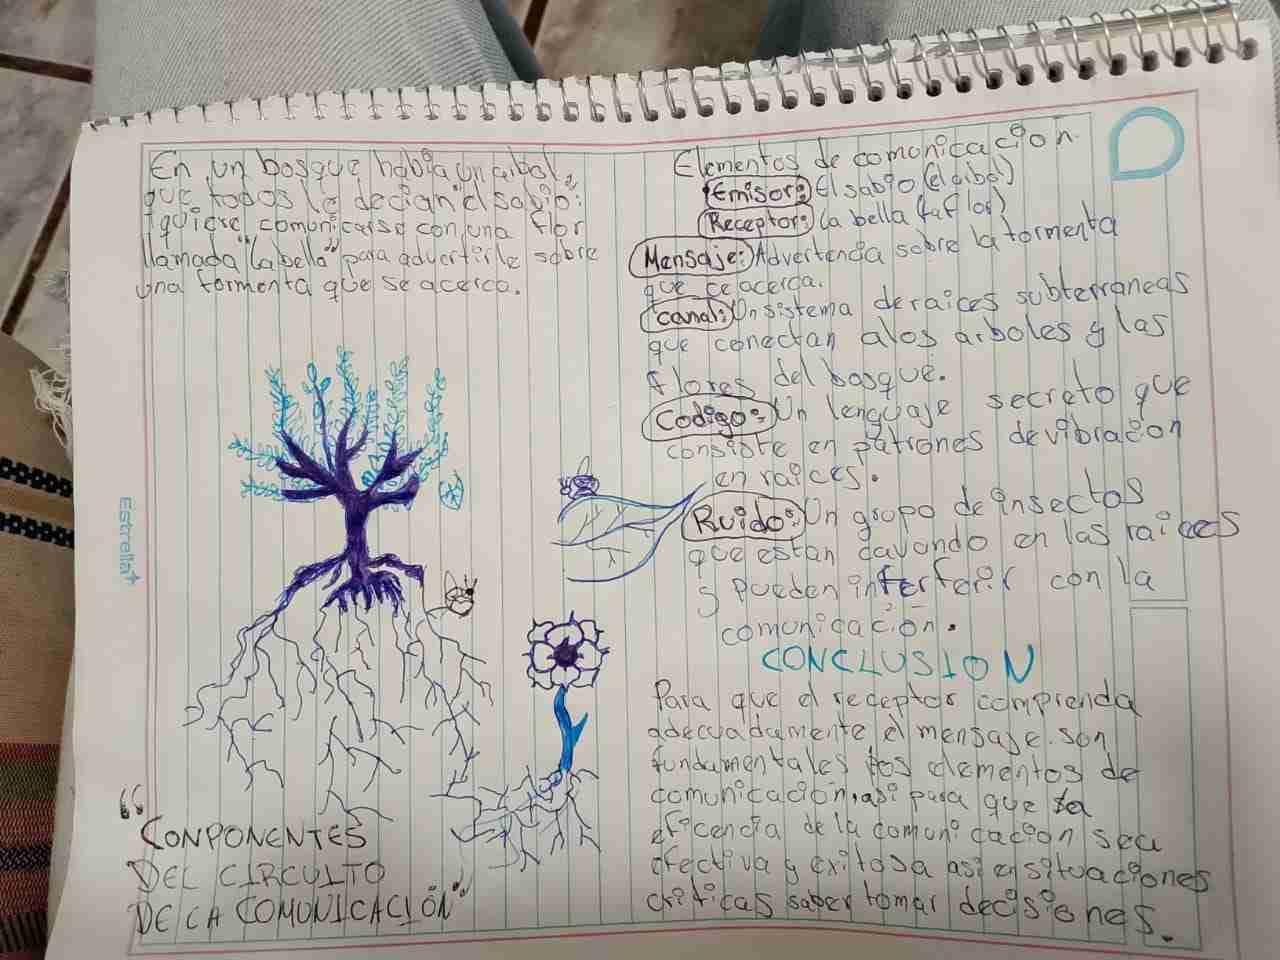 En un bosque habia un arbol,
que todos le decian "el sabio":
quiere comunicarse con una flor
llamada "La bella" para advertirle sobre
una tormenta que se acerca.
Estrella
"CONPONENTES
DEL CIRCUITO
DE LA COMUNICACIÓN"
Elementos de comonicacion.
Emisor: El sabio (el arbol)
Receptor: La bella (la flor)
Mensaje: Advertencia sobre la tormenta
que ce acerca.
canal: Un sistema de raices subterraneas
que conectan alos arboles y las
flores del bosque.
Codigo: Un lenguaje secreto que
consiste en patrones de vibracion
en raices.
Ruido: Un grupo de insectos
que estan cavando en las raices
y pueden interferir con la
comunicación.
CONCLUSION
Para que el receptor comprenda
adecuadamente el mensaje. son
fundamentales los elementos de
comunicación, asi para que la
eficencia de la comunicacion sea
efectiva y exitosa asi en situaciones
criticas saber tomar decisiones.